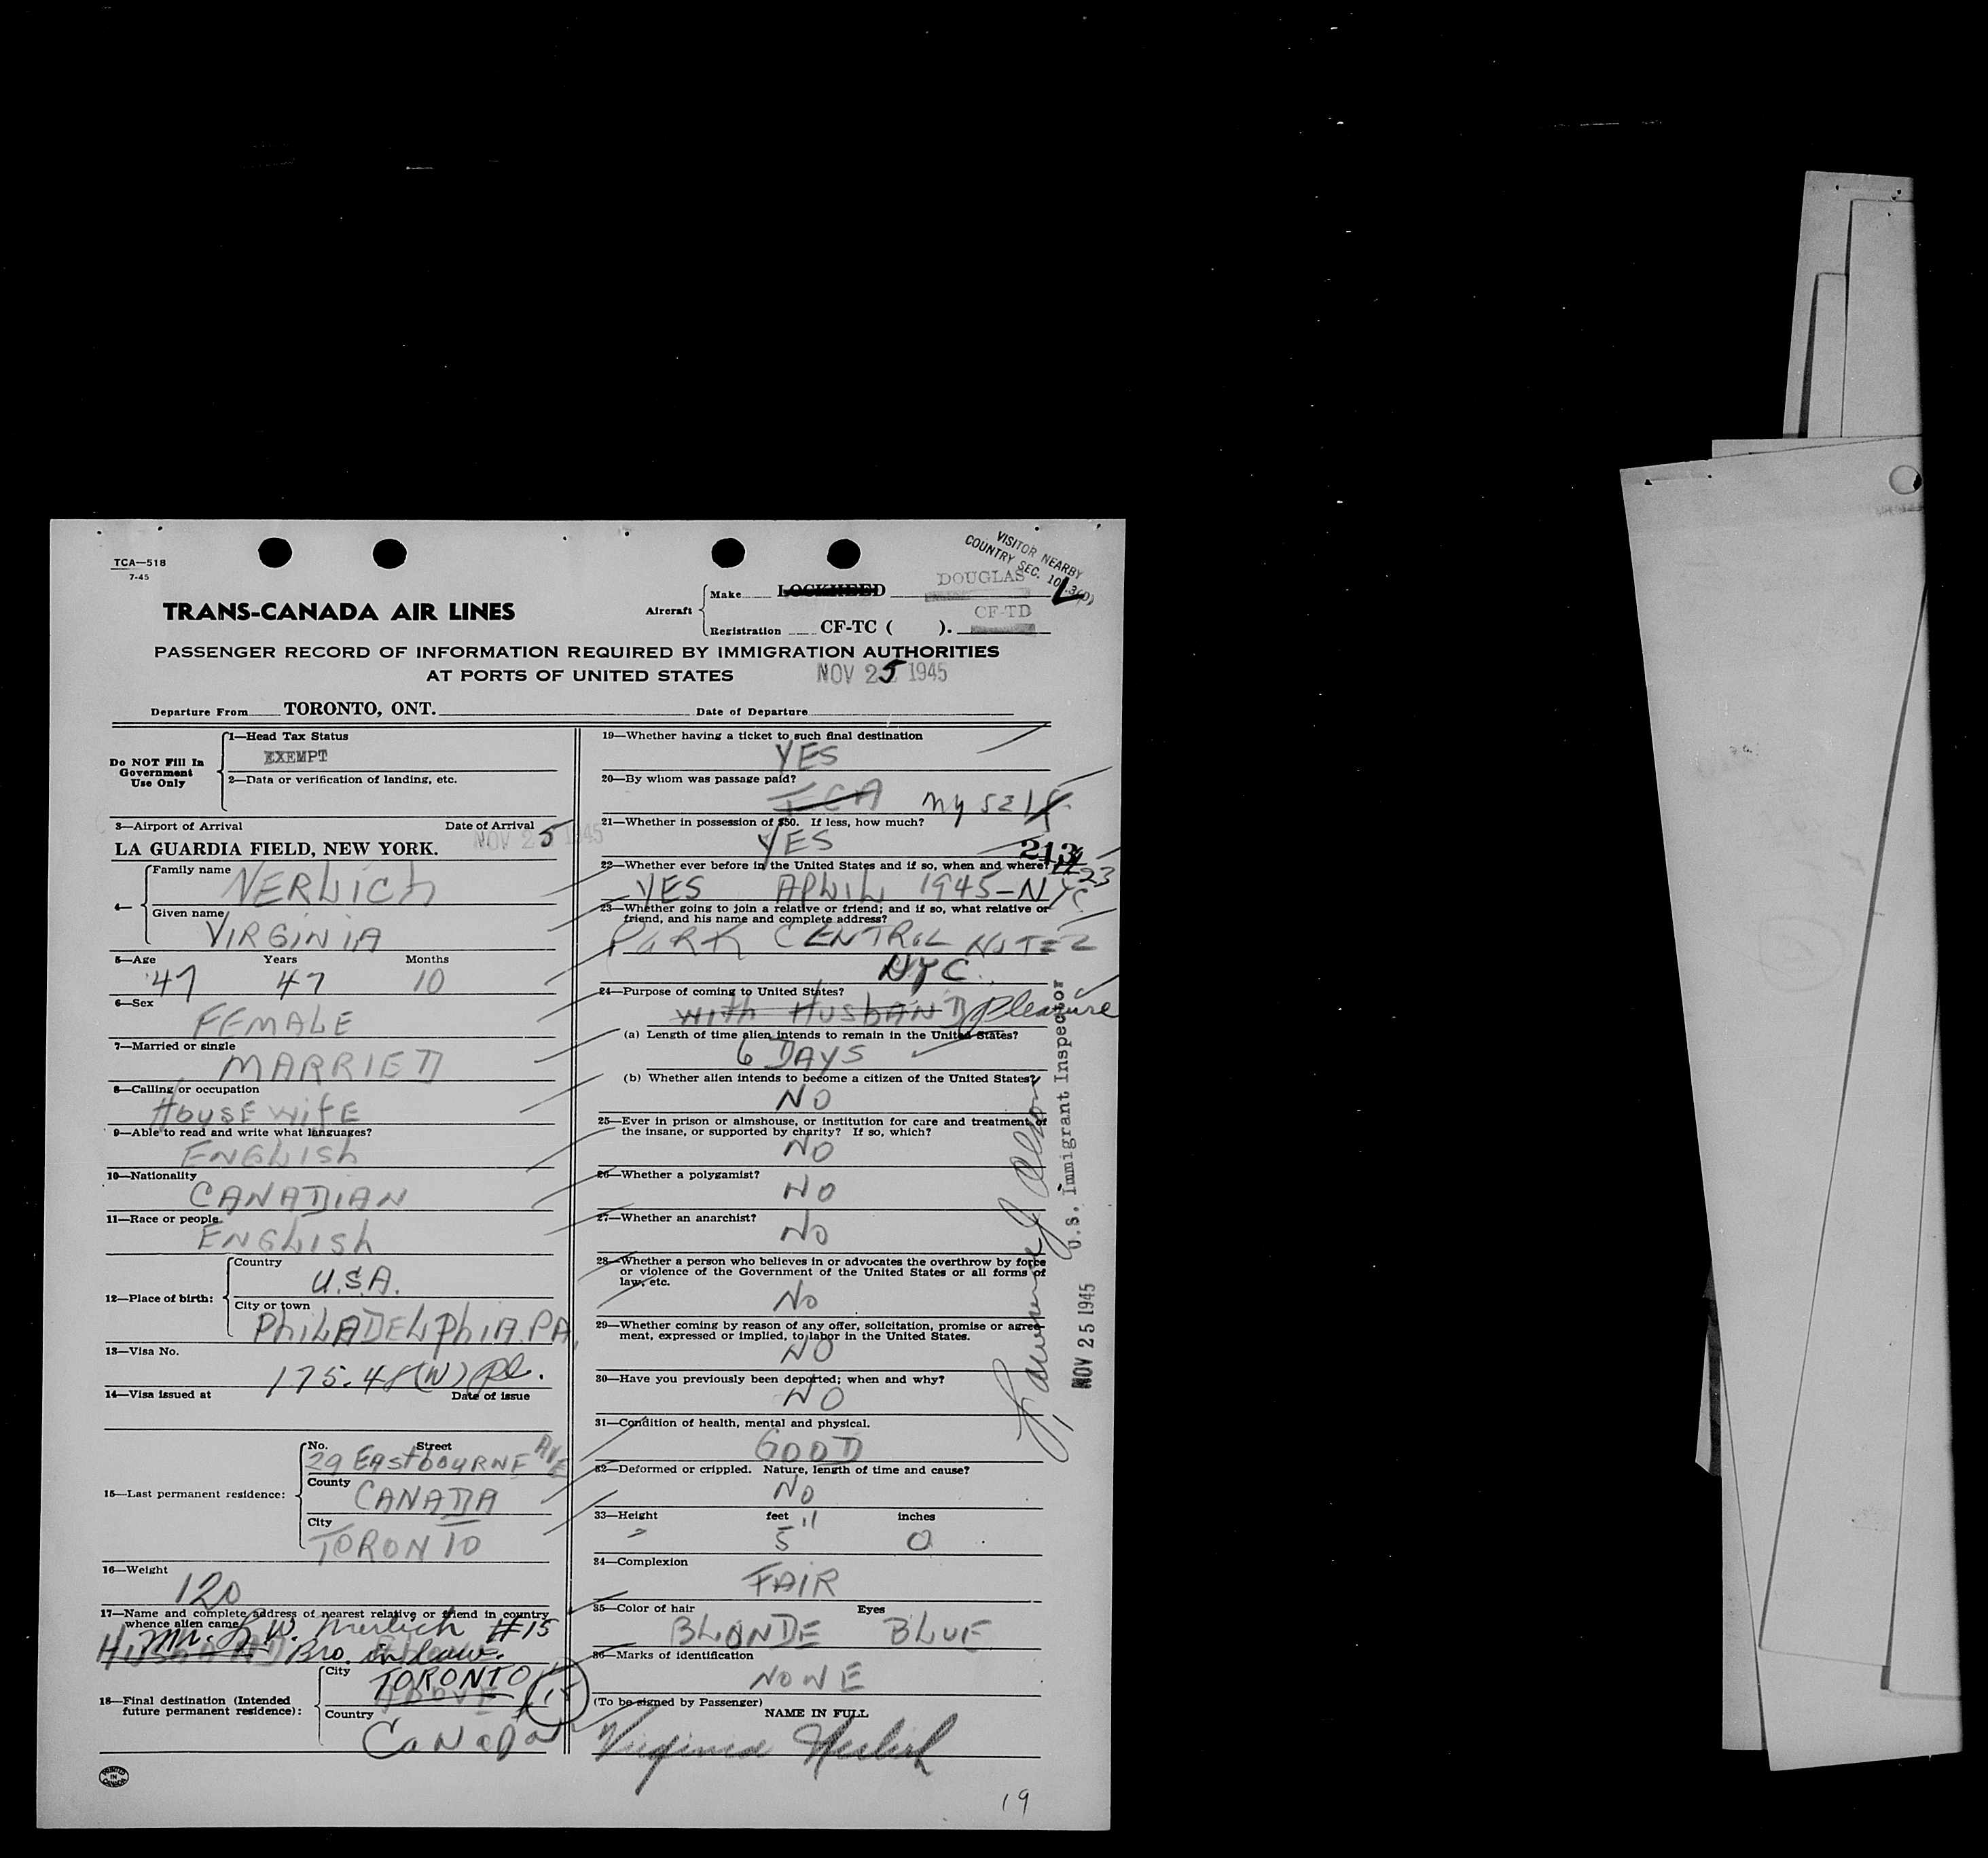 TCA—518
7-45
VISITOR NEARBY
COUNTRY SEC. 10
TRANS-CANADA AIR LINES
Aircraft
Make LOCKHEED DOUGLAS
Registration CF-TC ( ). CF-TD
PASSENGER RECORD OF INFORMATION REQUIRED BY IMMIGRATION AUTHORITIES
AT PORTS OF UNITED STATES
NOV 25 1945
Departure From TORONTO, ONT. Date of Departure
Do NOT Fill In
Government
Use Only
1—Head Tax Status
EXEMPT
2—Data or verification of landing, etc.
3—Airport of Arrival Date of Arrival
LA GUARDIA FIELD, NEW YORK. NOV 25 1945
4—
Family name
NERLICH
Given name
VIRGINIA
5—Age Years Months
47 47 10
6—Sex
FEMALE
7—Married or single
MARRIED
8—Calling or occupation
HOUSEWIFE
9—Able to read and write what languages?
ENGLISH
10—Nationality
CANADIAN
11—Race or people
ENGLISH
12—Place of birth:
Country
U.S.A.
City or town
PHILADELPHIA PA.
13—Visa No.
175.48(W)
14—Visa issued at Date of issue
15—Last permanent residence:
No. Street
29 EASTBOURNE AVE
County
CANADA
City
TORONTO
16—Weight
120
17—Name and complete address of nearest relative or friend in country
whence alien came
Mr. W. Nerlich #15
HUSBAND Bro. in law.
18—Final destination (Intended
future permanent residence):
City
TORONTO
ABOVE 15
Country
CANADA
PRINTED
IN
CANADA
19—Whether having a ticket to such final destination
YES
20—By whom was passage paid?
TCA MYSELF
21—Whether in possession of $50. If less, how much?
YES
213
23
22—Whether ever before in the United States and if so, when and where?
YES APRIL 1945-NYC
23—Whether going to join a relative or friend; and if so, what relative or
friend, and his name and complete address?
PARK CENTRAL HOTEL
NYC.
24—Purpose of coming to United States?
WITH HUSBAND Pleasure
(a) Length of time alien intends to remain in the United States?
6 DAYS
(b) Whether alien intends to become a citizen of the United States?
NO
25—Ever in prison or almshouse, or institution for care and treatment of
the insane, or supported by charity? If so, which?
NO
26—Whether a polygamist?
NO
27—Whether an anarchist?
NO
28—Whether a person who believes in or advocates the overthrow by force
or violence of the Government of the United States or all forms of
law, etc.
NO
29—Whether coming by reason of any offer, solicitation, promise or agree-
ment, expressed or implied, to labor in the United States.
NO
30—Have you previously been deported; when and why?
NO
31—Condition of health, mental and physical.
GOOD
32—Deformed or crippled. Nature, length of time and cause?
NO
33—Height feet inches
5 0
34—Complexion
FAIR
35—Color of hair Eyes
BLONDE BLUE
36—Marks of identification
NONE
(To be signed by Passenger)
NAME IN FULL
Virginia Nerlich
U.S. Immigrant Inspector
NOV 25 1945
19